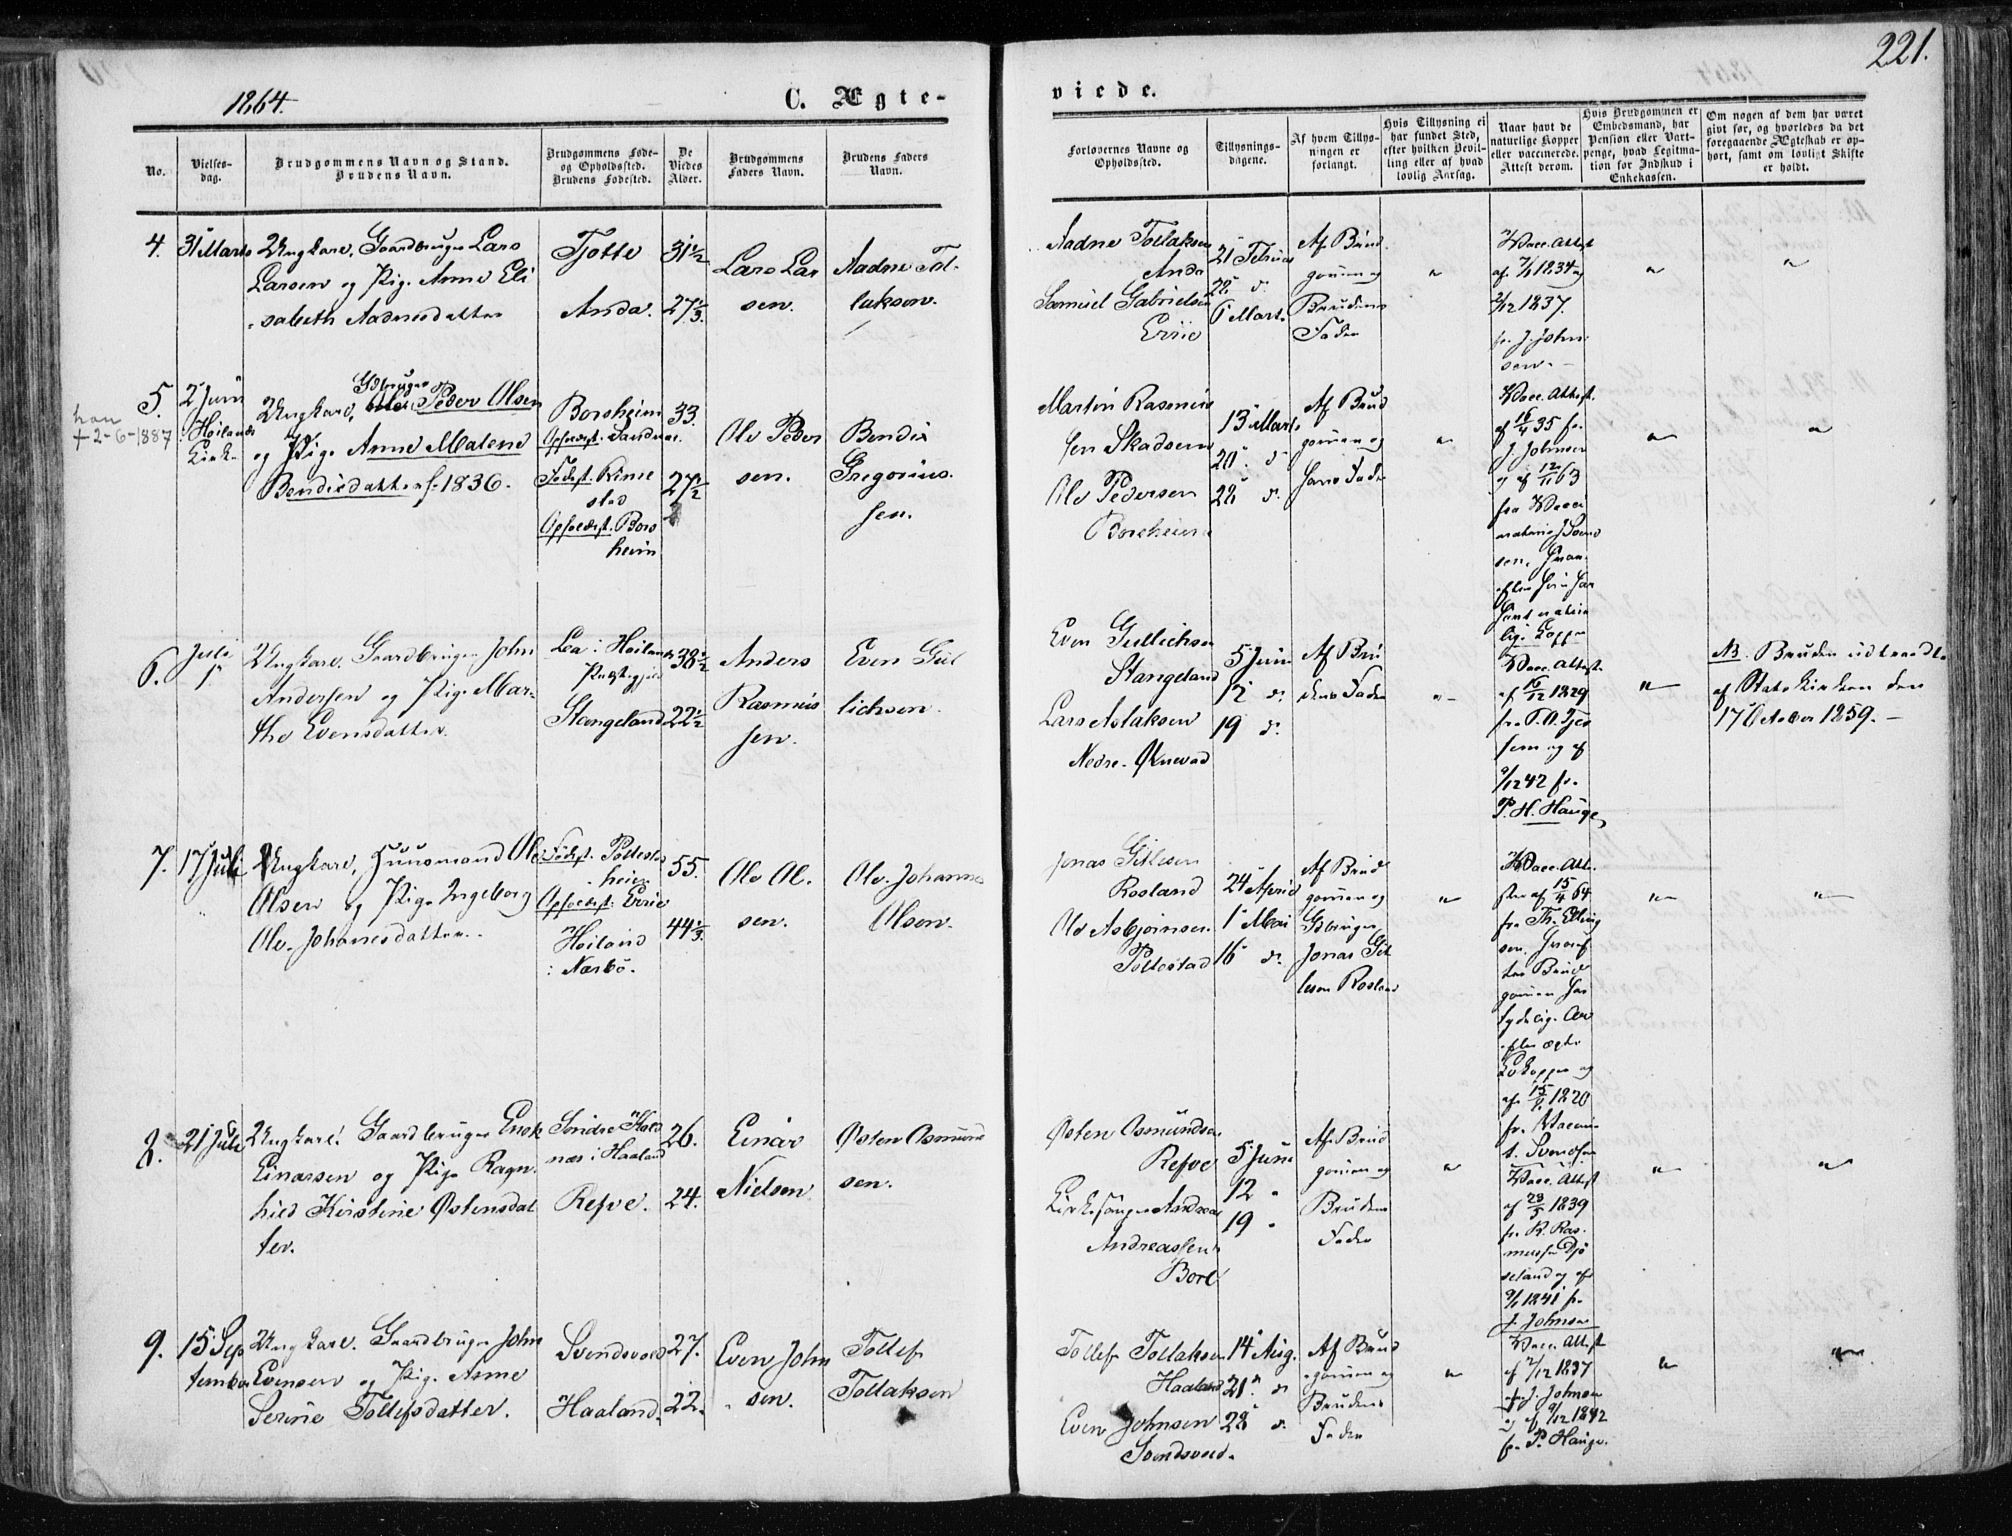 221.
1864.
C. Ægte-
viede.
No.
Vielses-
dag.
Brudgommens Navn og Stand.
Brudens Navn.
Brudgommens Føde-
og Opholdssted.
Brudens Fødested.
De
Viedes
Alder.
Brudgommens
Faders Navn.
Brudens Faders
Navn.
Forlovernes Navne og
Opholdssted.
Tillysnings-
dagene.
Af hvem Tillys-
ningen er
forlangt.
Hvis Tillysning ei
har fundet Sted,
efter hvilken Bevil-
ling eller af hvad
lovlig Aarsag.
Naar havt de
naturlige Kopper
eller vaccinerede.
Attest derom.
Hvis Brudgommen er
Embedsmand, har
Pension eller Vart-
penge, hvad Legitima-
tion for Indskud i
Enkekassen.
Om nogen af dem har været
givt før, og hvorledes da det
foregaaende Ægteskab er op-
hørt, samt om lovligt Skifte
er holdt.
4.
31 Marts
Ungkarl, Gaardbruger Lars
Larsen og Pige Anne Eli
sabeth Aadnesdatter
Tjotte
Anda.
31 1/2
27 1/3.
Lars Lar
sen.
Aadne Tol-
laksen.
Aadne Tollaksen
Anda
Samuel Gabrielsen
Eriie
21 Februar
28 d.
6 Marts
Af Brud
gommen og
Brudens
Fader
"
Vacc. Attest
af 7/1 1834 og
2/12 1837.
fr. J. John
sen. -
"
"
5.
2 Juni
i Høilands
Kirke
han
+2-6-1887
Gdbruger
Ungkarl, Peder Olsen
og Pige Anne Malene
Bendixdatter f. 1836.
Borsheim
Opholdst. Sandnæs.
Fødest. Kinne
stad
Opholdst. Bors
heim
33.
27 1/2
Ole Peder
sen.
Bendix
Gregorius
sen.
Martin Rasmus
sen Skadsem
Ole Pedersen
Borsheim
13 Marts
20 d
28 d.
Af Brud
gommen og
hans Fader
"
Vacc. Attest.
af 16/4 35 fr.
J. Johnsen
og af 12/11 63
fra Vacci
sen, hvor
efter hun har
havt naturlige
Kopper
"
"
6.
Juli
1.
Ungkarl. Gaardbruger John
Andersen og Pige Mar-
the Evensdatter.
Lea i Høilands
Præstegjeld
Stangeland
38 1/2
22 1/2
Anders
Rasmus
sen.
Even Gul
lichsen.
Even Gullichsen
Stangeland
Lars Aslaksen
Nedre-Øxnevad
5 Juni
12 d.
19 d.
Af Bru
dens Fader
"
Vacc. Attest.
af 16/12 1829
fr. T. A. Tjes
sem og af
9/12 42 fr.
P. H. Hauge
"
NB. Bruden udtraadte
af Statskirken den
17 October 1859. -
7.
17 Juli
Ungkarl, Huusmand Ole
Olsen og Pige Ingeborg
Ole-Johannesdatter.
Fødest. Pollestad
heien
Opholdst. Eriie
Høiland
i Nærbø.
55.
44 1/3.
Ole Ol.
sen.
Ole Johannes
Olsen.
Jonas Gitlesen
Rosland
Ole Asbjørnsen
Pollestad
24 April
1 Mai
16 d.
Af Brud
gommen og
Gdbruger
Jonas Git
lesen Rosland
"
Vacc. Atte-
ster af 15/4 64
fr. Th. Elling
sen, hvoref
ter Brud
gommen har
tydelige Ar
efter ægte
Kokopper og
af 15/8 1820
fr. Vaccin.
S. Svendsen
"
"
8.
21 Juli
Ungkarl. Gaardbruger Enok
Einarsen og Pige Ragn
hild Kirstine Østensdat
ter.
Søndre Kals
næs i Haaland
Refve.
26.
24.
Einar
Nielsen
Østen Osmund
sen.
Østen Osmundsen
Refve
Kirkesanger Andreas
Andreassen
Bore
5 Juni
12 "
19 "
Af Brud
gommen og
Brudens
Fader
"
Vacc. Attest
af 23/5 1839
fr. R. Ras.
mussen Djø
seland og af
9/1 1841 fr.
J. Johnsen
"
"
9.
15 Sep
tember
Ungkarl. Gaardbruger John
Evensen og Pige Anne
Serine Tollefsdatter.
Svendsvold
Haaland.
27.
22.
Even John
sen.
Tollef
Tollaksen
Tollef Tollaksen
Haaland
Even Johnsen
Svendsvold.
14 Aug.
21 d
28 d.
Af Brud
gommen og
Brudens
Fader
"
Vacc. Attest
af 2/12 1837
fr. J. Johnsen
og af 9/12 1842
fr. P. Hauge.
"
"